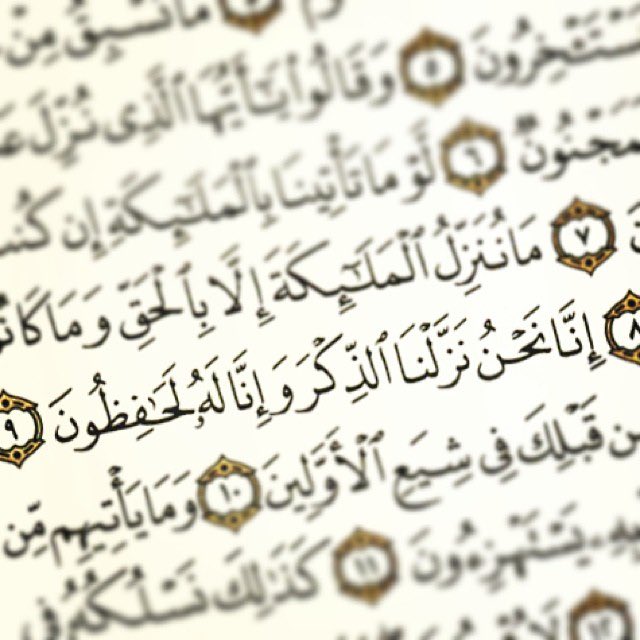 مَا تَسْبِقُ مِنْ
يَسْتَـْٔخِرُونَ ٥ وَقَالُوا۟ يَـٰٓأَيُّهَا ٱلَّذِى نُزِّلَ
لَمَجْنُونٌ ٦ لَّوْ مَا تَأْتِينَا بِٱلْمَلَـٰٓئِكَةِ إِن
٧ مَا نُنَزِّلُ ٱلْمَلَـٰٓئِكَةَ إِلَّا بِٱلْحَقِّ وَمَا
٨ إِنَّا نَحْنُ نَزَّلْنَا ٱلذِّكْرَ وَإِنَّا لَهُۥ لَحَـٰفِظُونَ ٩
قَبْلِكَ فِى شِيَعِ ٱلْأَوَّلِينَ ١٠ وَمَا يَأْتِيهِم مِّن
يَسْتَهْزِءُونَ ١١ كَذَٰلِكَ نَسْلُكُهُۥ فِى
١٢ لَا